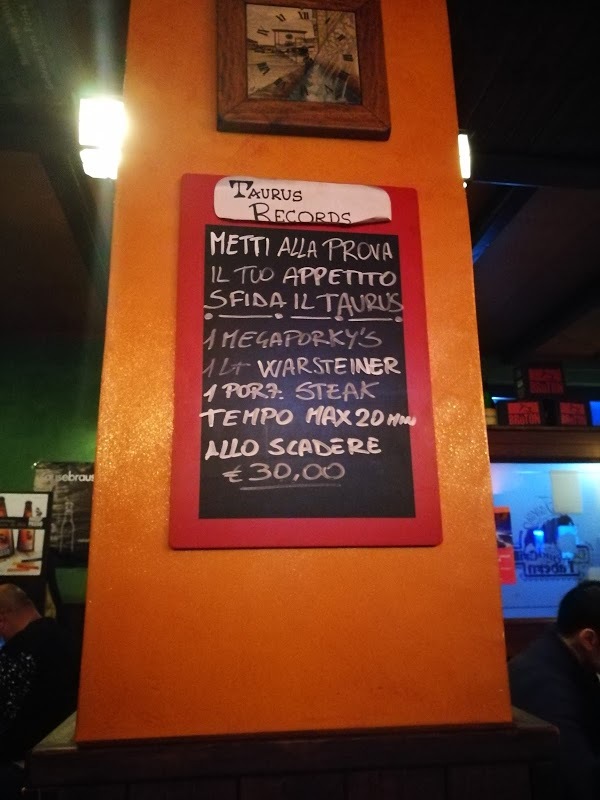 TAURUS
RECORDS
METTI ALLA PROVA
IL TUO APPETITO
SFIDA IL TAURUS
1 MEGAPORKY'S
1 LT WARSTEINER
1 PORZ. STEAK
TEMPO MAX 20 MIN
ALLO SCADERE
€ 30,00